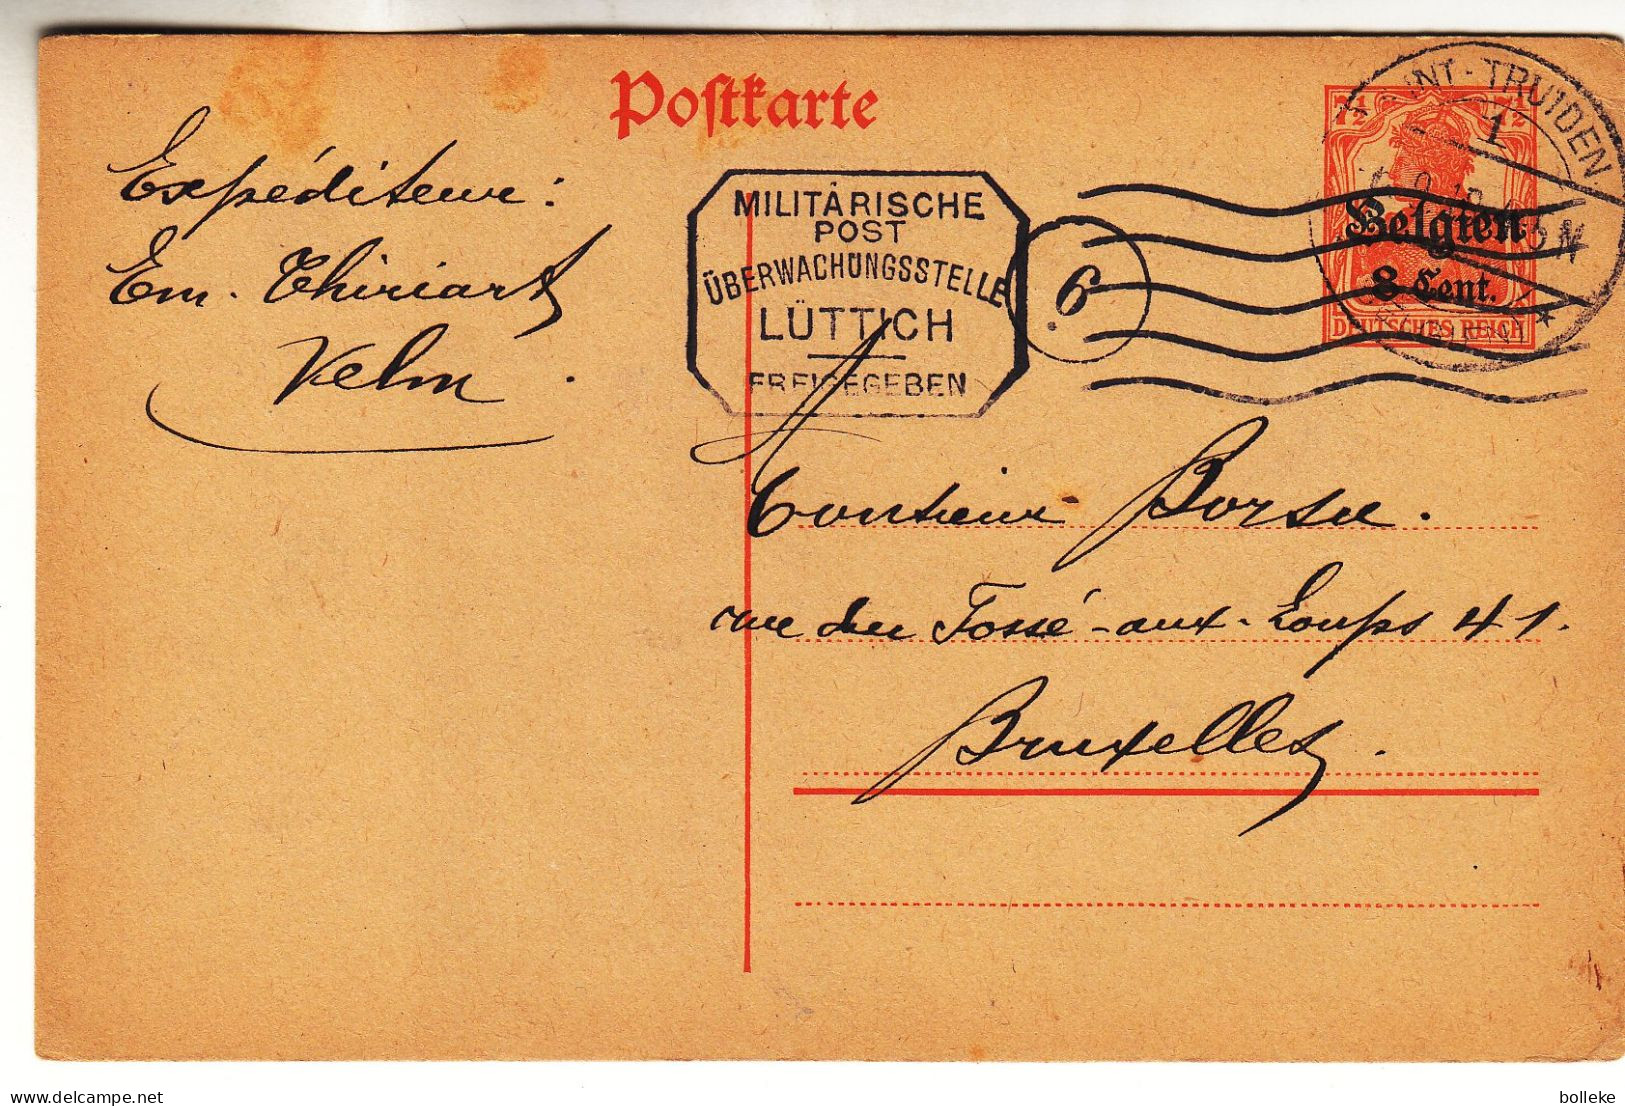 Postkarte
Expéditeur :
Em. Thiriart
Velm.
MILITÄRISCHE
POST
ÜBERWACHUNGSSTELLE
LÜTTICH
FREIGEGEBEN
6
7½ 7½
INT-TRUIDEN
1
Belgien
8 Cent.
DEUTSCHES REICH
Borsu.
rue du Fossé-aux-Loups 41.
Bruxelles.
bolleke